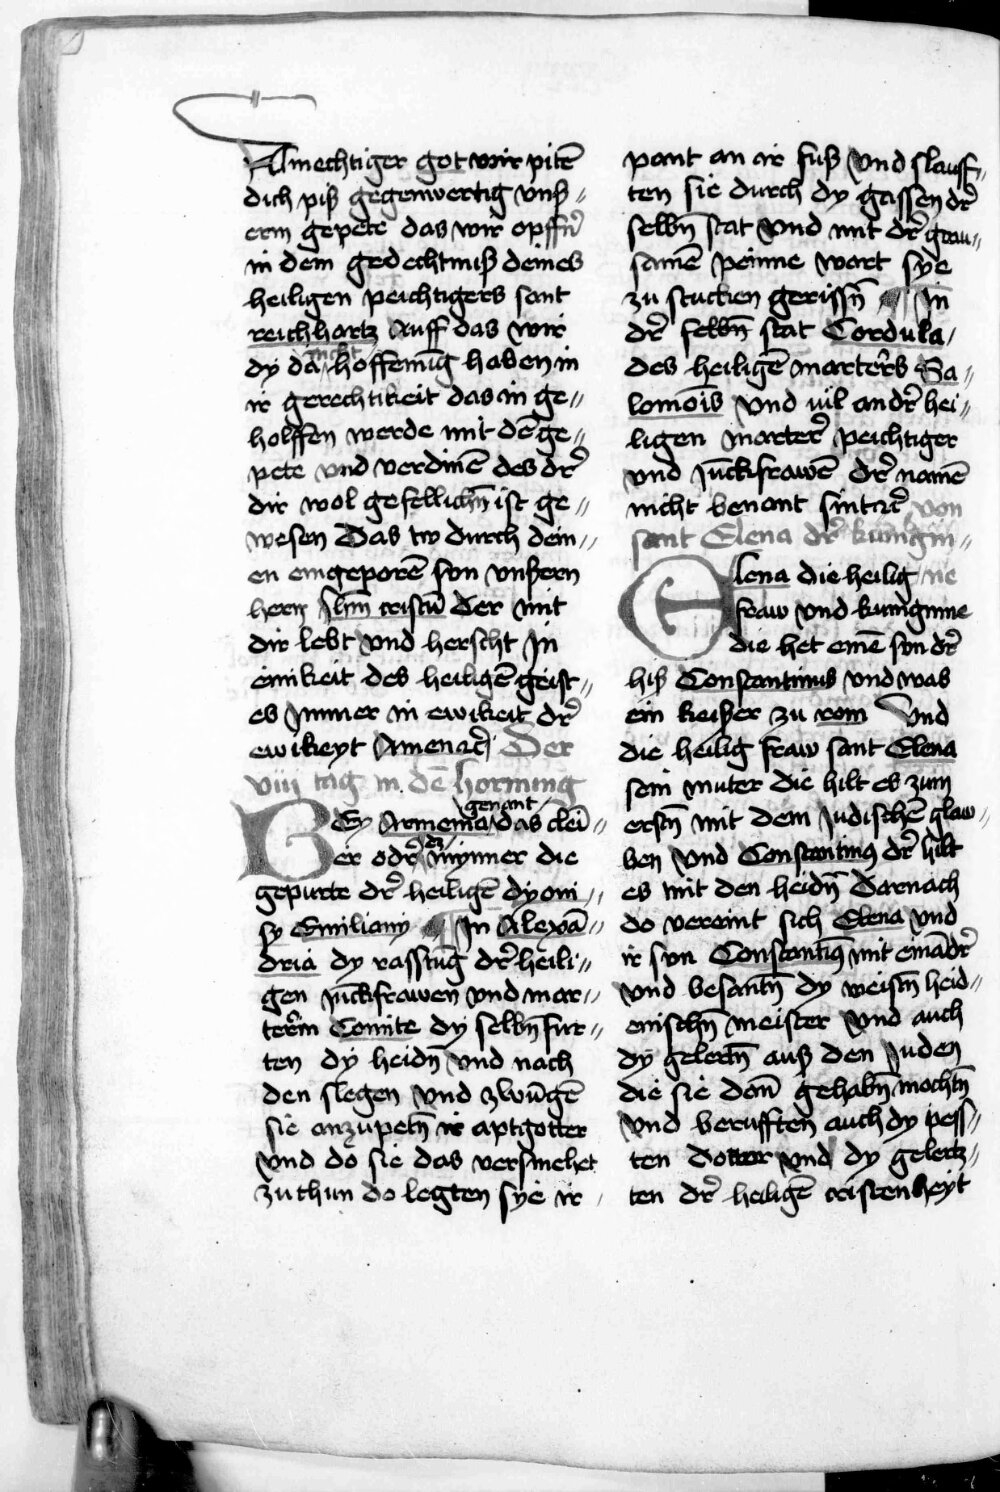 Almechtiger got wir pitē
dich piß gegenwertig vnß〃
erm gepete das wir opffn̄
in dem gedechtniß deines
heiligen peichtigers sant
reichhartz Auff das wir
dy da nicht hoffenūg haben in
ir gerechtikeit das in ge〃
holffen werde mit dē ge〃
pete vnd verdinē des dr̄
dir wol gefellichn̄ ist ge〃
wesen Das tw durch dein〃
en eingeporē svn vnßern
hern Jhm cristū Der mit
dir lebt vnd herscht In
einikeit des heiligē geist〃
es Immer in ewikeit dr̄
ewikeyt Amen Der
viii tag in dē hornung
Bey Armenia genant das clei〃
er odr̄ dz mynner die
gepurte dr̄ heiligē dyoni〃
sy Emiliany In Alexā〃
dria dy rasstūg dr̄ heili〃
gen Jūckfrawen vnd mar〃
terin Cointe dy selbn̄ fur〃
ten dy heidn̄ vnd nach
den slegen vnd zwūgē
sie anzupetn̄ ir aptgotter
vnd do sie das versmehet
zu thun do legten sye ir
pant an ir fuß vnd slauff〃
ten sie durch dy gassen dr̄
selbn̄ stat vnd mit dr̄ grau〃
samē peinne wart sye
zu stucken gerissn̄ In
dr̄ selbn̄ stat Cordula
des heiligē marters Sa〃
lomōis vnd vil andr̄ hei〃
ligen marter̄ peichtiger
vnd Jūckfrawē dr̄ namē
nicht benant sint von
sant Elena dr̄ kunigin〃
ne
Elena die heilig
fraw vnd kuniginne
die het einē svn dr̄
hiß Constantinus vnd was
ein keißer zu rom Vnd
die heilig fraw sant Elena
sein muter die hilt es zum
erstn̄ mit dem Judischē glaw〃
ben vnd Constantinus dr̄ hilt
es mit den heidn̄ Darnach
do vereint sich Elena vnd
ir svn Constantiꝰ mit einādr̄
vnd besantn̄ dy weistn̄ heid〃
enischn̄ meister vnd auch
dy gelertn̄ auß den Juden
die sie dān gehabn̄ mochtn̄
vnd berufften auch dy pess〃
ten doctor vnd dy gelertz〃
ten dr̄ heiligē cristenheyt